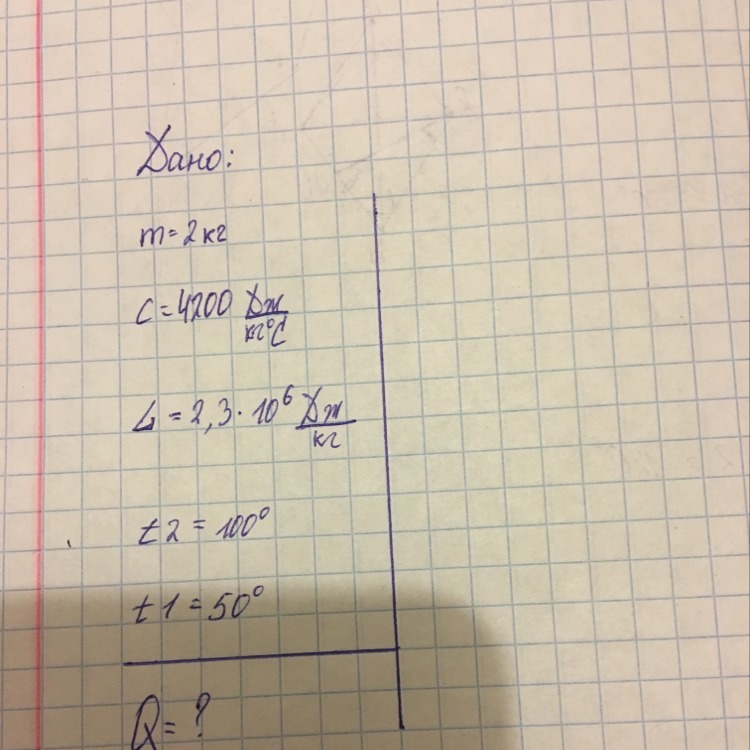 Дано:
m=2кг
C=4200 Дж/кг°C
L=2,3·10⁶ Дж/кг
t2=100°
t1=50°
Q=?